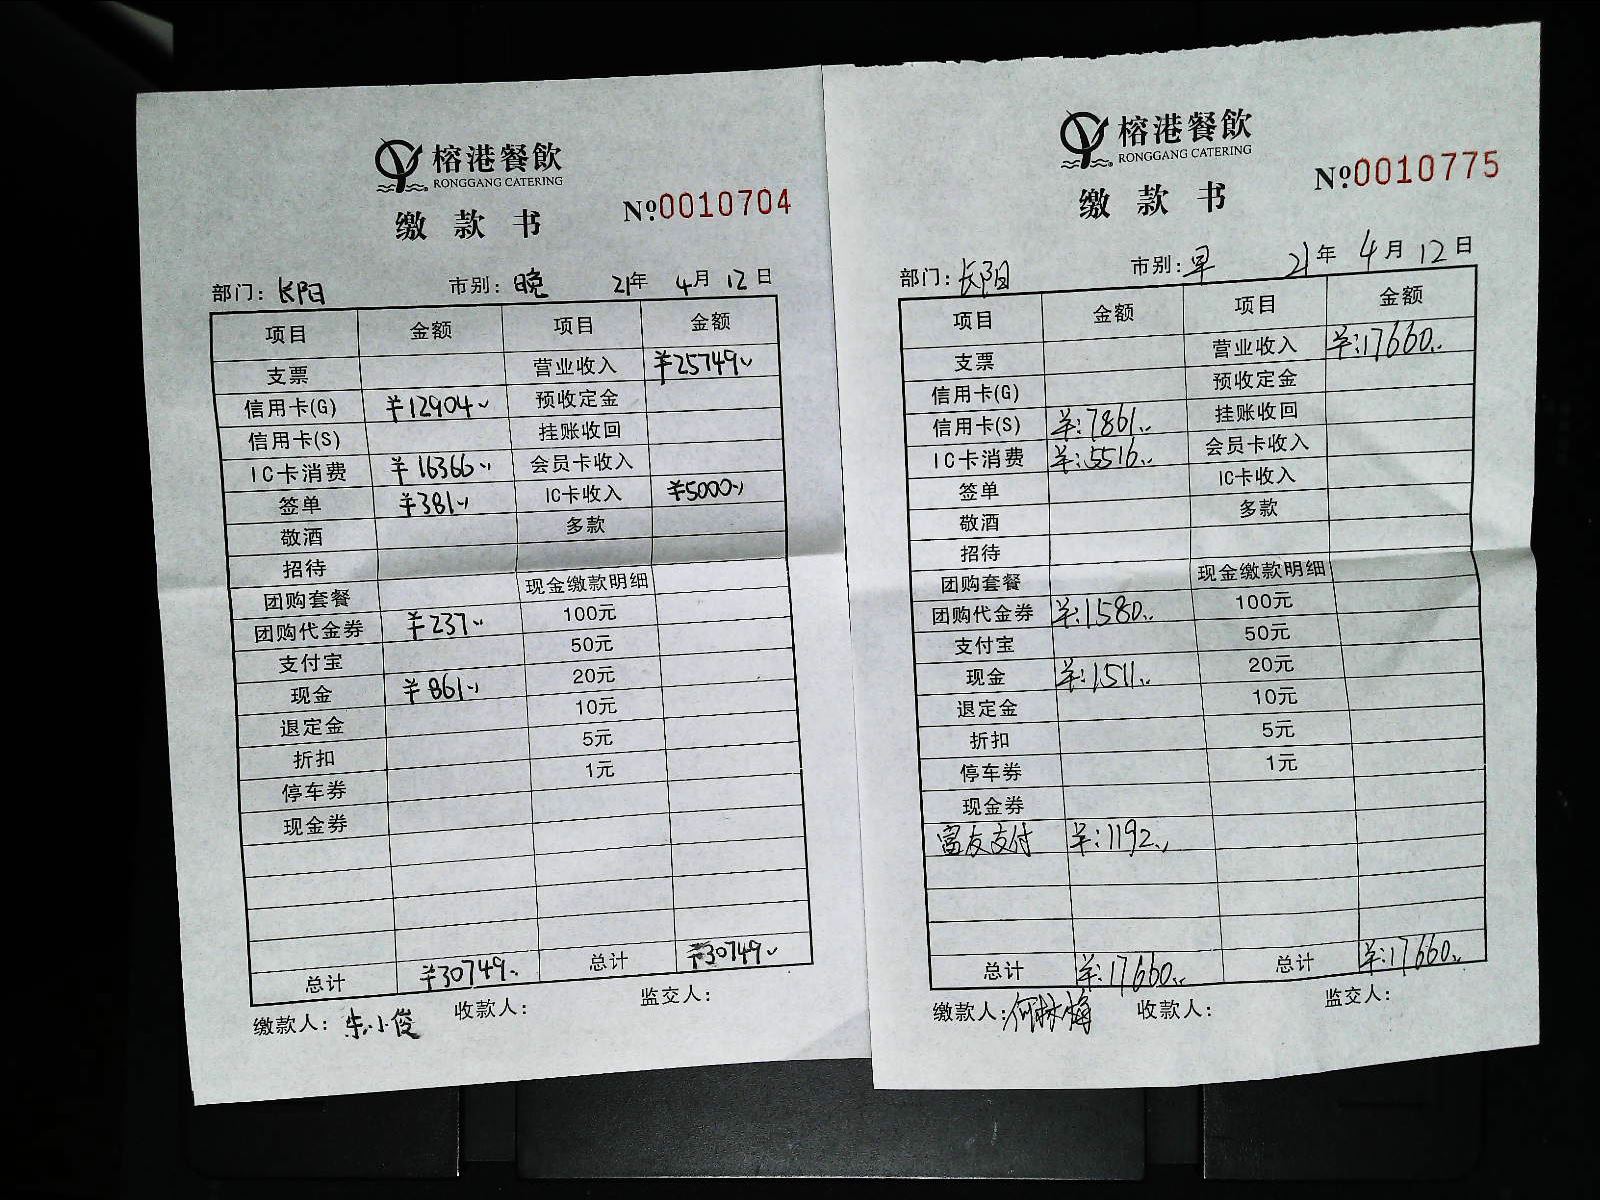 榕港餐飲
RONGGANG CATERING
缴款书
№0010704
部门：长阳 市别：晚 21年 4月 12日
项目 金额 项目 金额
支票 营业收入 ¥25749.
信用卡(G) ¥12904. 预收定金
信用卡(S) 挂账收回
IC卡消费 ¥16366. 会员卡收入
签单 ¥381. IC卡收入 ¥5000.
敬酒 多款
招待
团购套餐 现金缴款明细
团购代金券 ¥237. 100元
支付宝 50元
现金 ¥861. 20元
退定金 10元
折扣 5元
停车券 1元
现金券
总计 ¥30749. 总计 ¥30749.
缴款人：朱小俊 收款人： 监交人：
榕港餐飲
RONGGANG CATERING
缴款书
№0010775
部门：长阳 市别：早 21年 4月 12日
项目 金额 项目 金额
支票 营业收入 ¥:17660..
信用卡(G) 预收定金
信用卡(S) ¥:7861.. 挂账收回
IC卡消费 ¥:5516.. 会员卡收入
签单 IC卡收入
敬酒 多款
招待
团购套餐 现金缴款明细
团购代金券 ¥:1580.. 100元
支付宝 50元
现金 ¥:1511.. 20元
退定金 10元
折扣 5元
停车券 1元
现金券
富友支付 ¥:1192..
总计 ¥:17660.. 总计 ¥:17660..
缴款人：何林梅 收款人： 监交人：